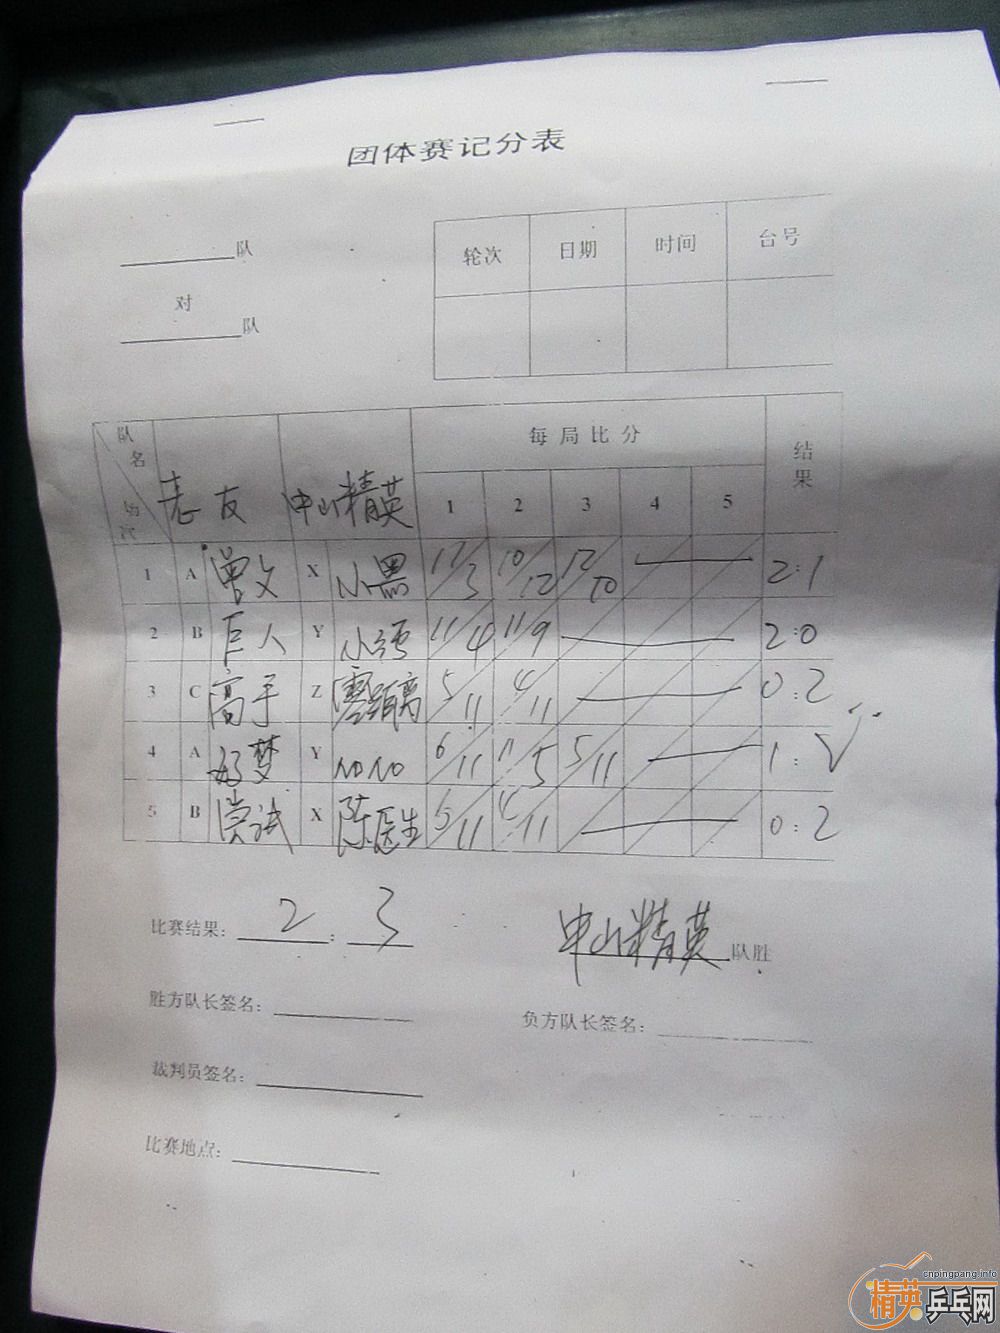 团体赛记分表
队
对
队
轮次 日期 时间 台号
队名 场次 友 中山精英 每局比分 结果
1 2 3 4 5
1 A 曾文 X 小黑 11/3 10/12 12/10 2:1
2 B 巨人 Y 小强 11/4 11/9 2:0
3 C 高手 Z 零距离 5/11 4/11 0:2
4 A 好梦 Y NONO 6/11 11/5 5/11 1:2
5 B 尝试 X 陈医生 5/11 4/11 0:2
比赛结果: 2 : 3 中山精英 队胜
胜方队长签名: 负方队长签名:
裁判员签名:
比赛地点:
cnpingpang.info
精英乒乓网